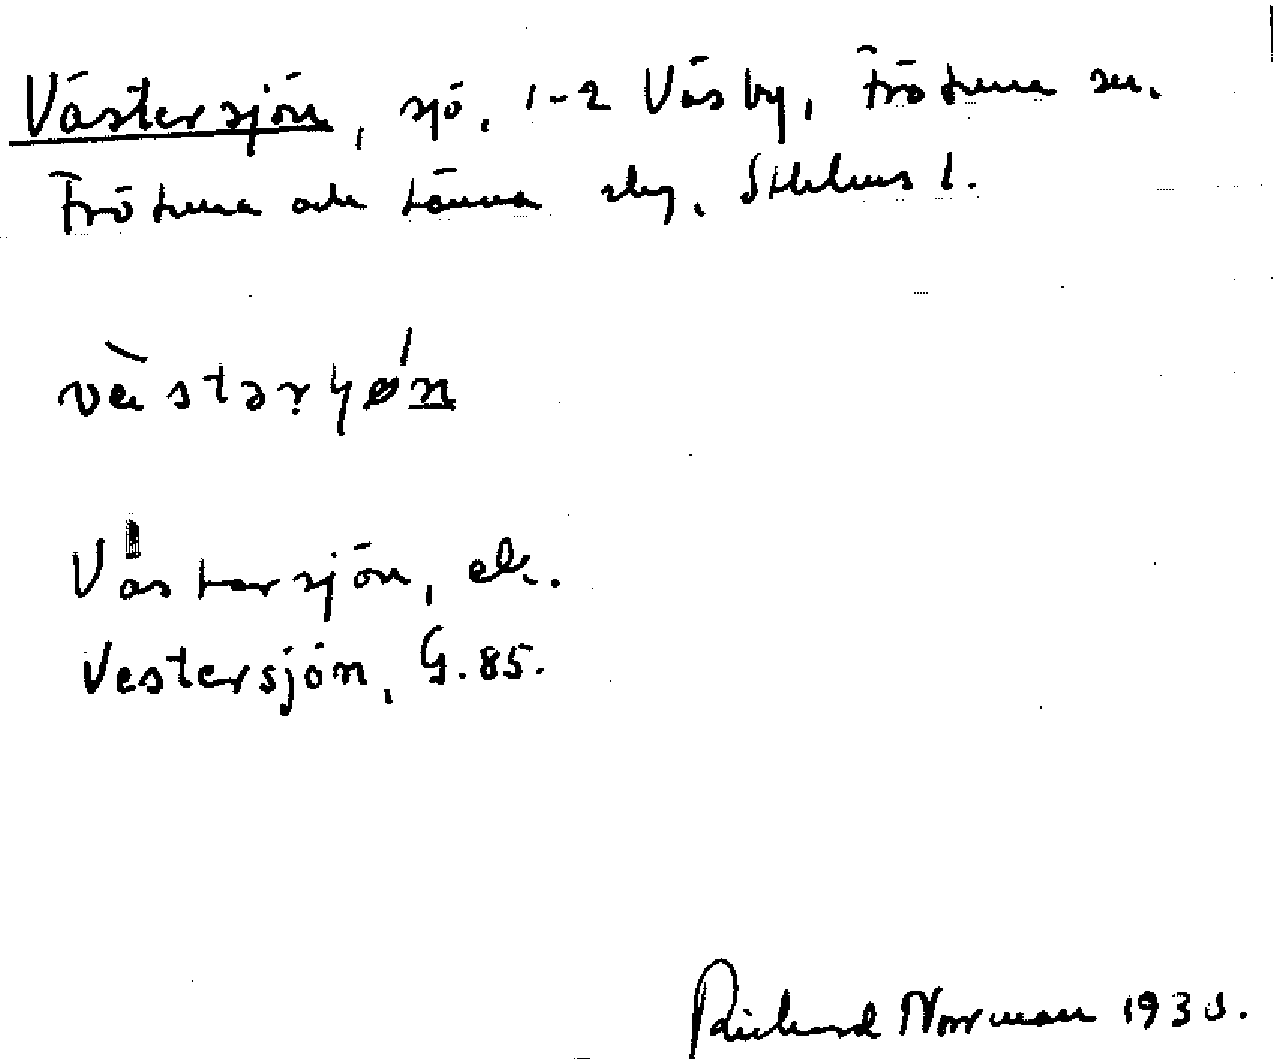 Västersjön, sjö, 1-2 Väsby, Frötuna sn.
Frötuna och Länna skg. Sthlms l.
vä̀stərɟǿn
Västersjön, ek.
Vestersjön, G. 85.
Richard Norrman 1930.